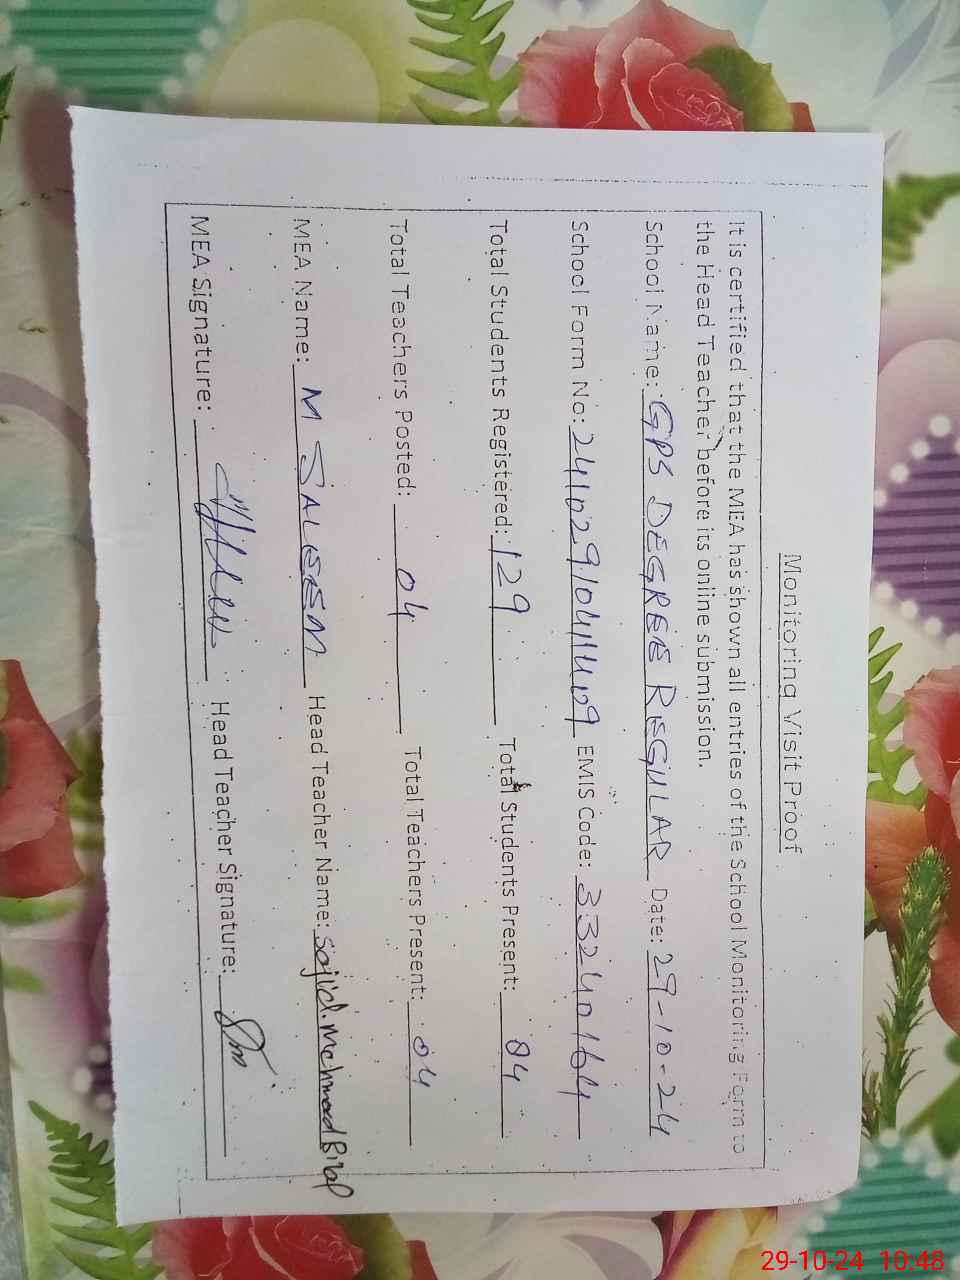 Monitoring Visit Proof
It is certified that the MEA has shown all entries of the School Monitoring Form to
the Head Teacher before its online submission.
School Name: GPS DEGREE REGULAR Date: 29-10-24
School Form No: 24102910411409 EMIS Code: 33240164
Total Students Registered: 129 Total Students Present: 84
Total Teachers Posted: 04 Total Teachers Present: 04
MEA Name: M SALEEM Head Teacher Name: Sajid Mehmood Bilal
MEA Signature: Head Teacher Signature:
29-10-24 10:48